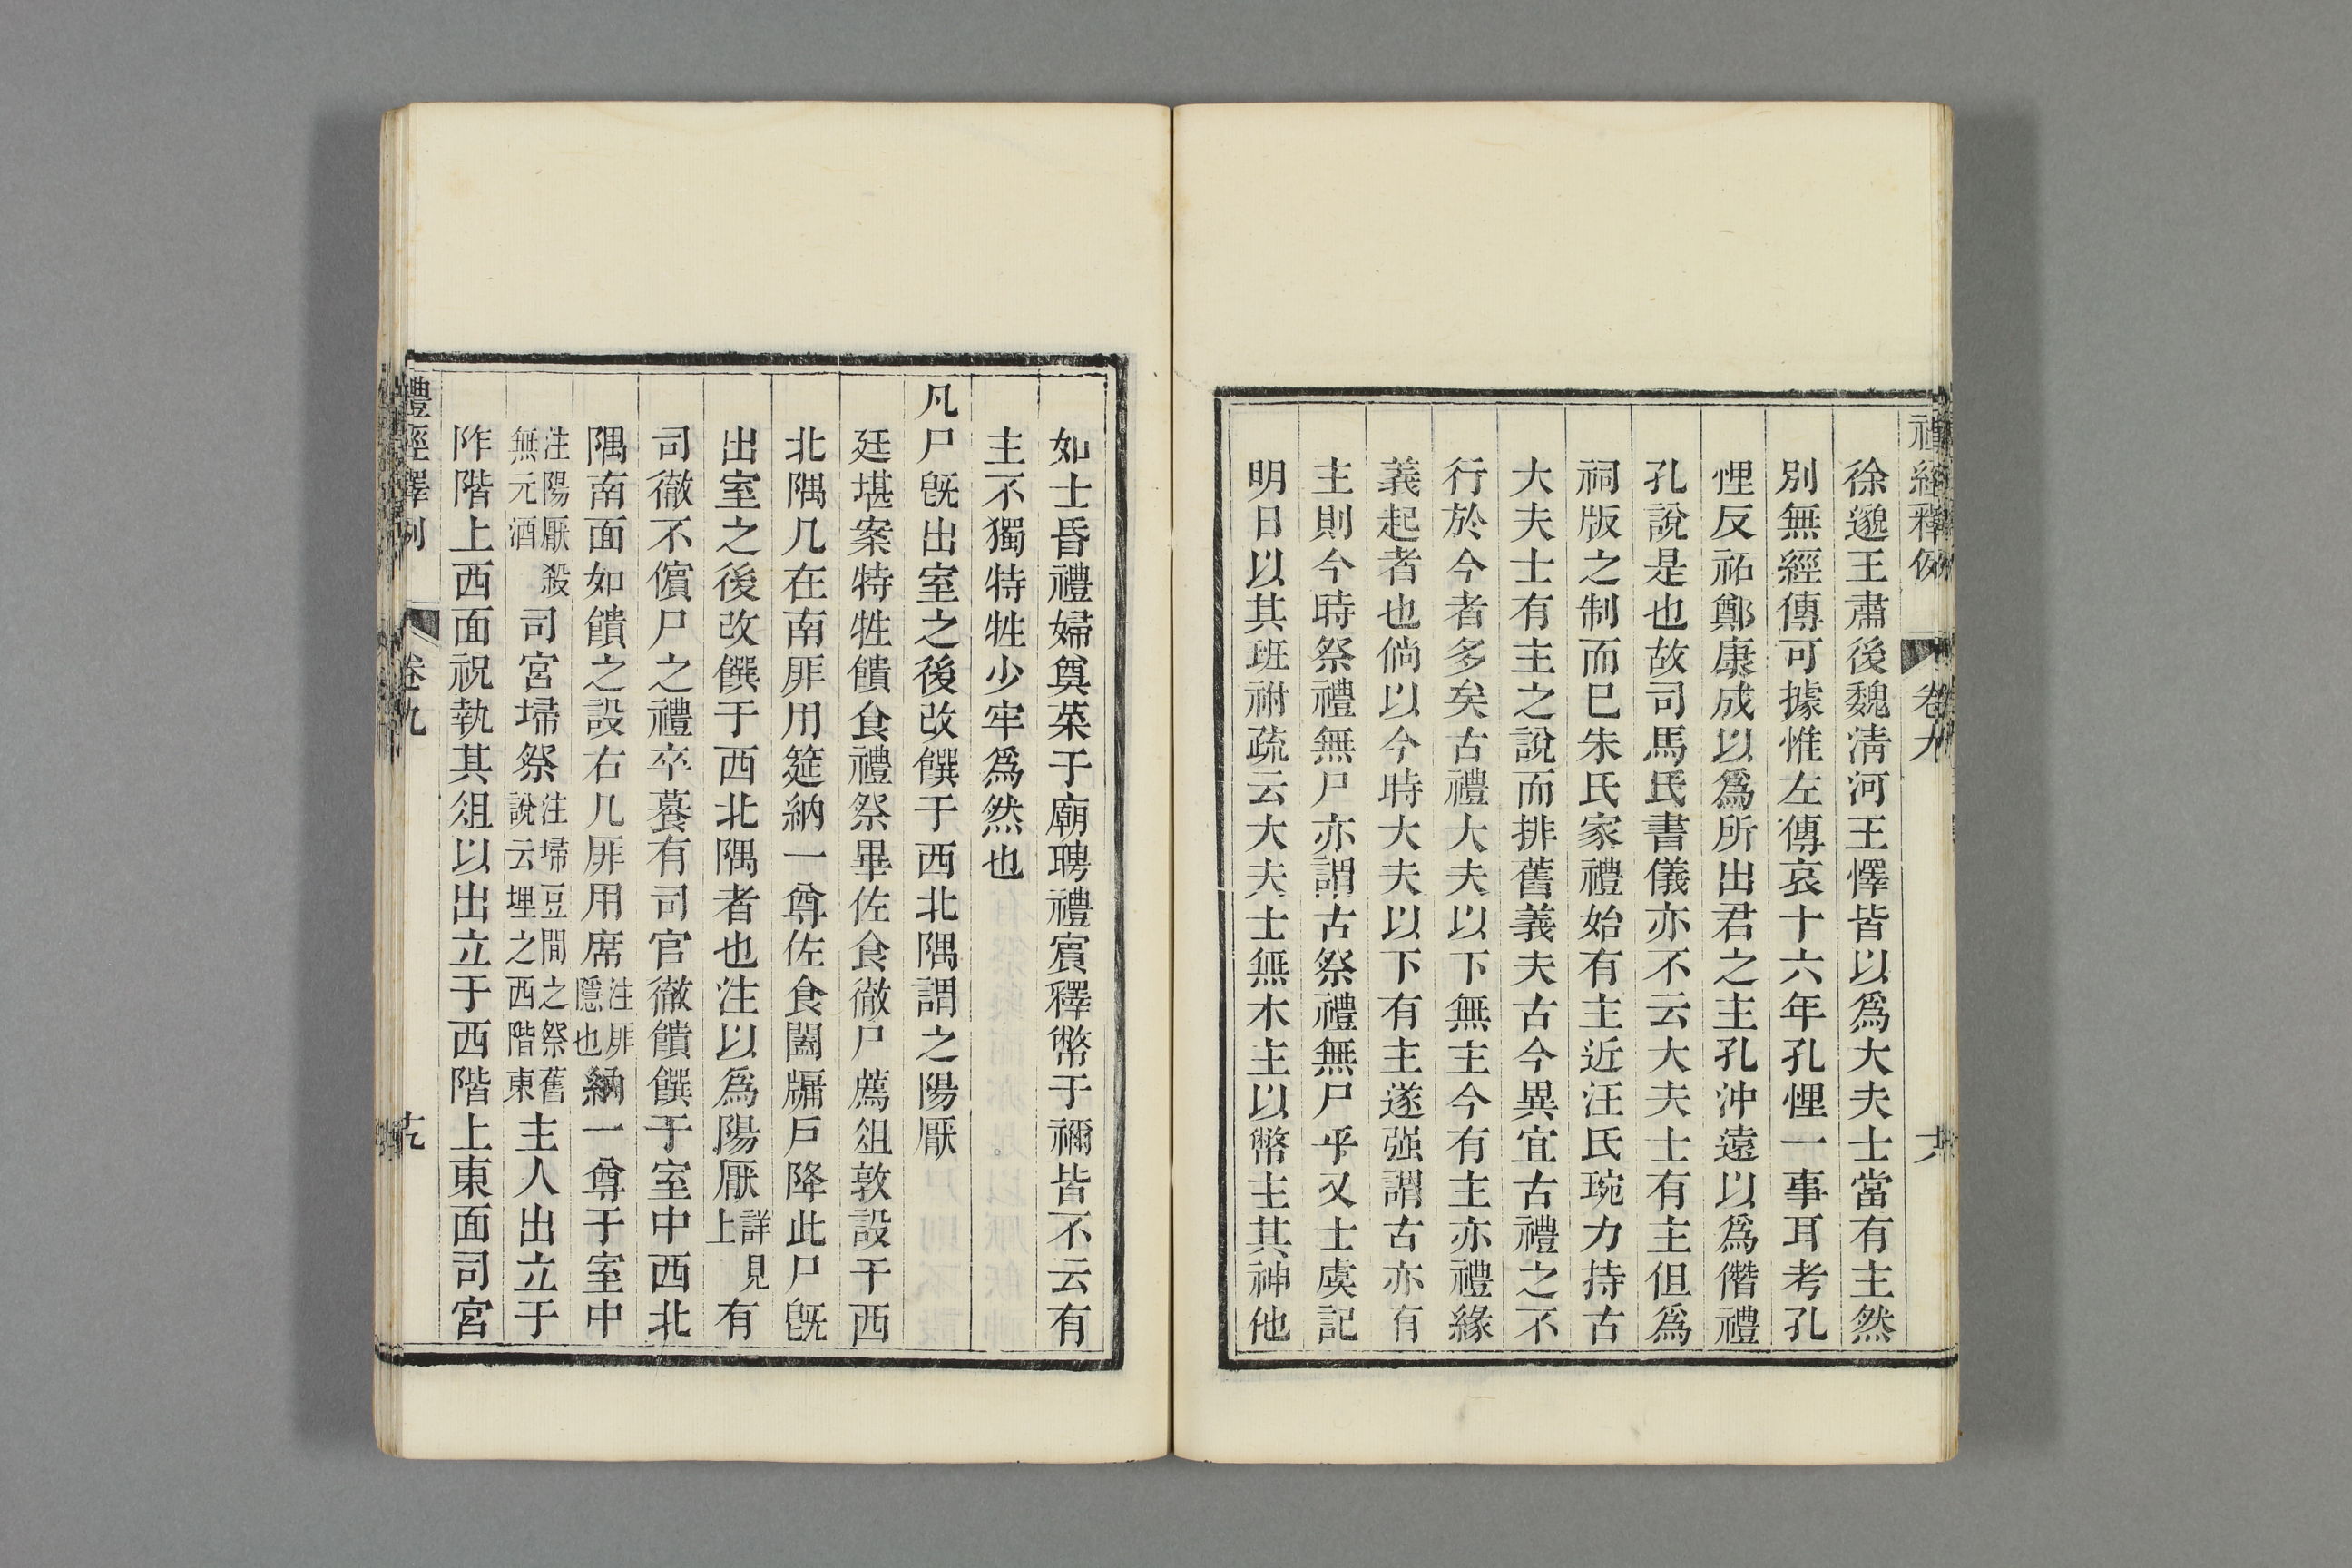 禮經釋例 卷九 十六
徐邈王肅後魏淸河王懌皆以爲大夫士當有主然
別無經傳可據惟左傳哀十六年孔悝一事耳考孔
悝反祏鄭康成以爲所出君之主孔沖遠以爲僭禮
孔說是也故司馬氏書儀亦不云大夫士有主但爲
祠版之制而已朱氏家禮始有主近汪氏琬力持古
大夫士有主之說而排舊義夫古今異宜古禮之不
行於今者多矣古禮大夫以下無主今有主亦禮緣
義起者也倘以今時大夫以下有主遂强謂古亦有
主則今時祭禮無尸亦謂古祭禮無尸乎又士虞記
明日以其班祔疏云大夫士無木主以幣主其神他
如士昏禮婦奠菜于廟聘禮賓釋幣于禰皆不云有
主不獨特牲少牢爲然也
凡尸旣出室之後改饌于西北隅謂之陽厭
廷堪案特牲饋食禮祭畢佐食徹尸薦俎敦設于西
北隅几在南厞用筵納一尊佐食闔牖戶降此尸旣
出室之後改饌于西北隅者也注以爲陽厭詳見上有
司徹不儐尸之禮卒䭕有司官徹饋饌于室中西北
隅南面如饋之設右几厞用席注厞隱也納一尊于室中
注陽厭殺無元酒司宮埽祭注埽豆閒之祭舊說云埋之西階東主人出立于
阼階上西面祝執其俎以出立于西階上東面司宮
禮經釋例 卷九